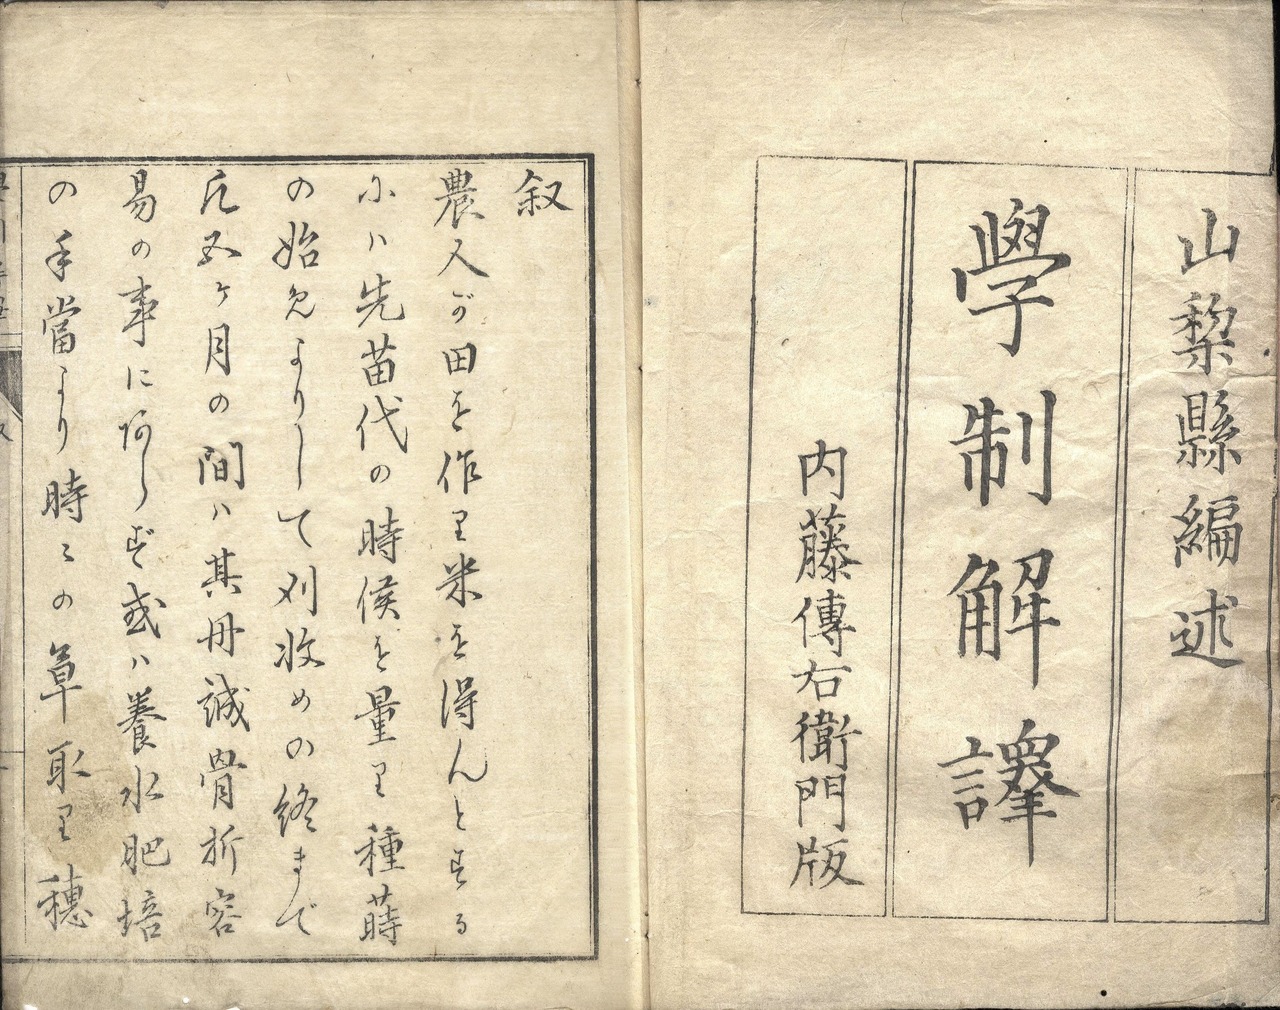 山棃縣編述
學制解譯
内藤傳右衛門版
叙
農人が田を作り米を得んとする
にハ先苗代の時候を量り種蒔
の始めよりして刈收めの終まで
凡五ヶ月の間ハ其丹誠骨折容
易の事にあらず或ハ養水肥培
の手當より時〻の草取り穗